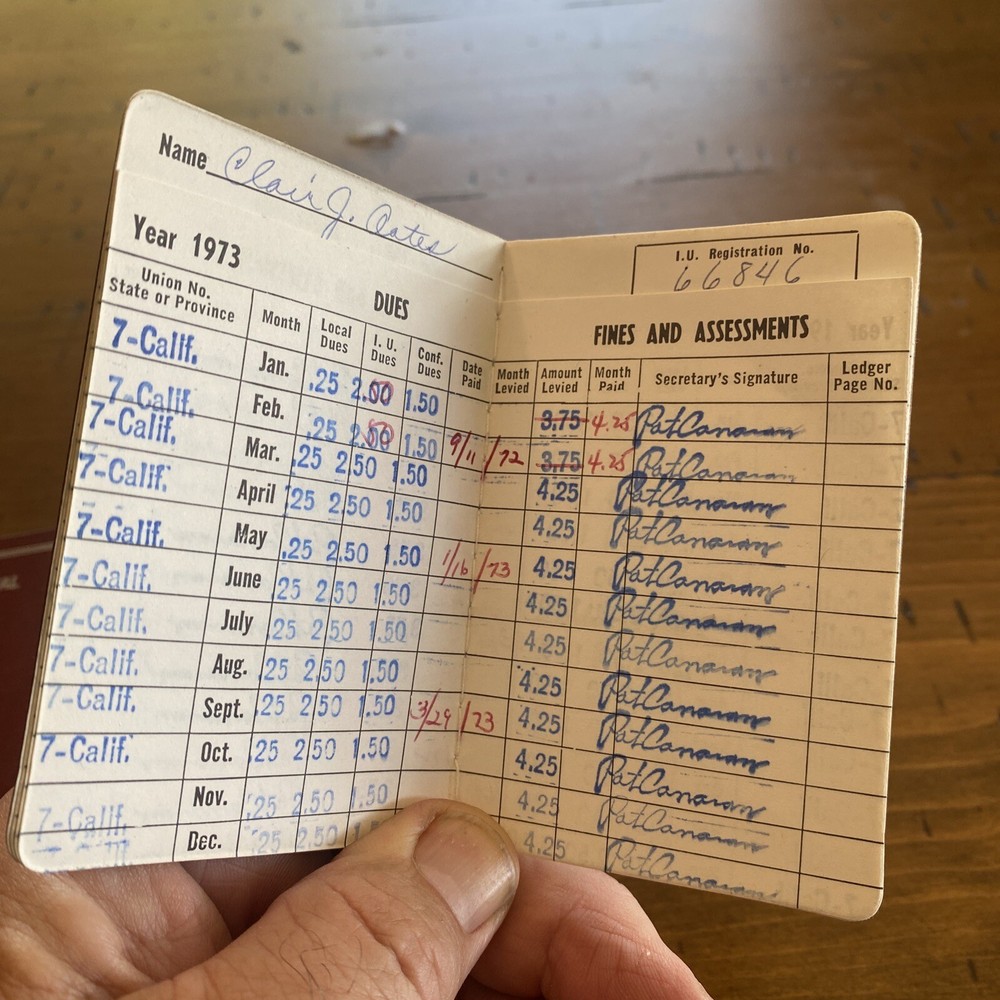 Name Clair J. Oates
Year 1973
DUES
Union No. State or Province Month Local Dues I. U. Dues Conf. Dues Date Paid
7-Calif. Jan. .25 2.00 1.50
7-Calif. Feb. .25 2.50 1.50 9/11/72
7-Calif. Mar. .25 2.50 1.50
7-Calif. April .25 2.50 1.50
7-Calif. May .25 2.50 1.50 1/16/73
7-Calif. June .25 2.50 1.50
7-Calif. July .25 2.50 1.50
7-Calif. Aug. .25 2.50 1.50
7-Calif. Sept. .25 2.50 1.50 3/29/73
7-Calif. Oct. .25 2.50 1.50
Nov. .25 2.50 1.50
7-Calif. Dec. .25 2.50
I.U. Registration No.
66846
FINES AND ASSESSMENTS
Month Levied Amount Levied Month Paid Secretary's Signature Ledger Page No.
3.75 4.25 Pat Canavan
3.75 4.25 Pat Canavan
4.25 Pat Canavan
4.25 Pat Canavan
4.25 Pat Canavan
4.25 Pat Canavan
4.25 Pat Canavan
4.25 Pat Canavan
4.25 Pat Canavan
4.25 Pat Canavan
4.25 Pat Canavan
4.25 Pat Canavan